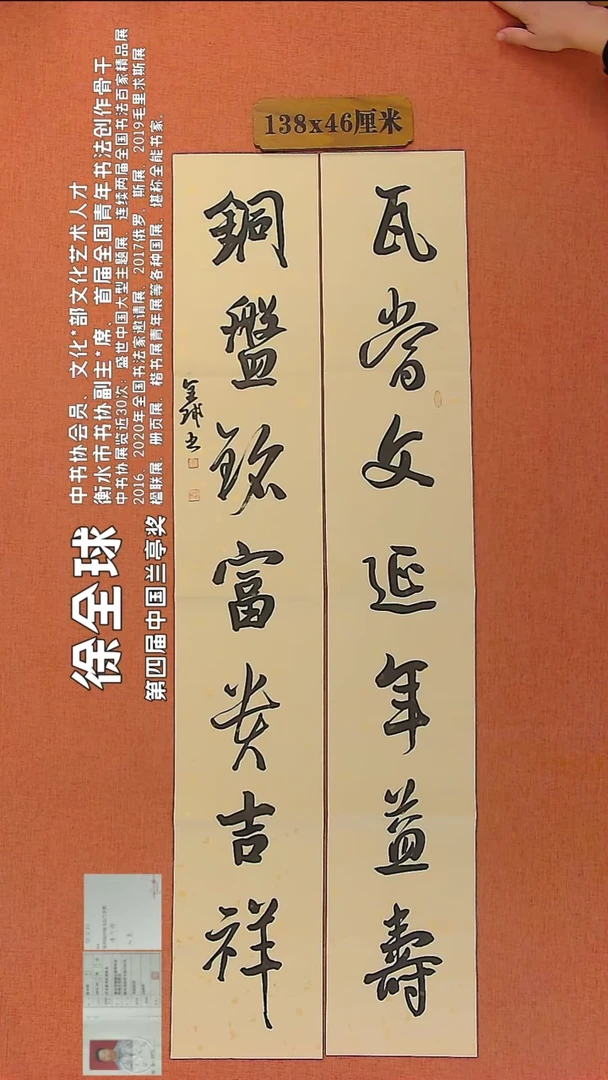 138x46厘米
瓦當文延年益壽
銅盤銘富貴吉祥
全球書
徐全球
第四届中国兰亭奖
中书协会员、文化*部文化艺术人才
衡水市书协副主*席、首届全国青年书法创作骨干
中书协展览近30次：盛世中国大型主题展、连续两届全国书法百家精品展
2016、2020年全国书法家邀请展、2017俄罗、斯展、2019毛里求斯展、
楹联展、册页展、楷书展青年展等各种国展，堪称全能书家、